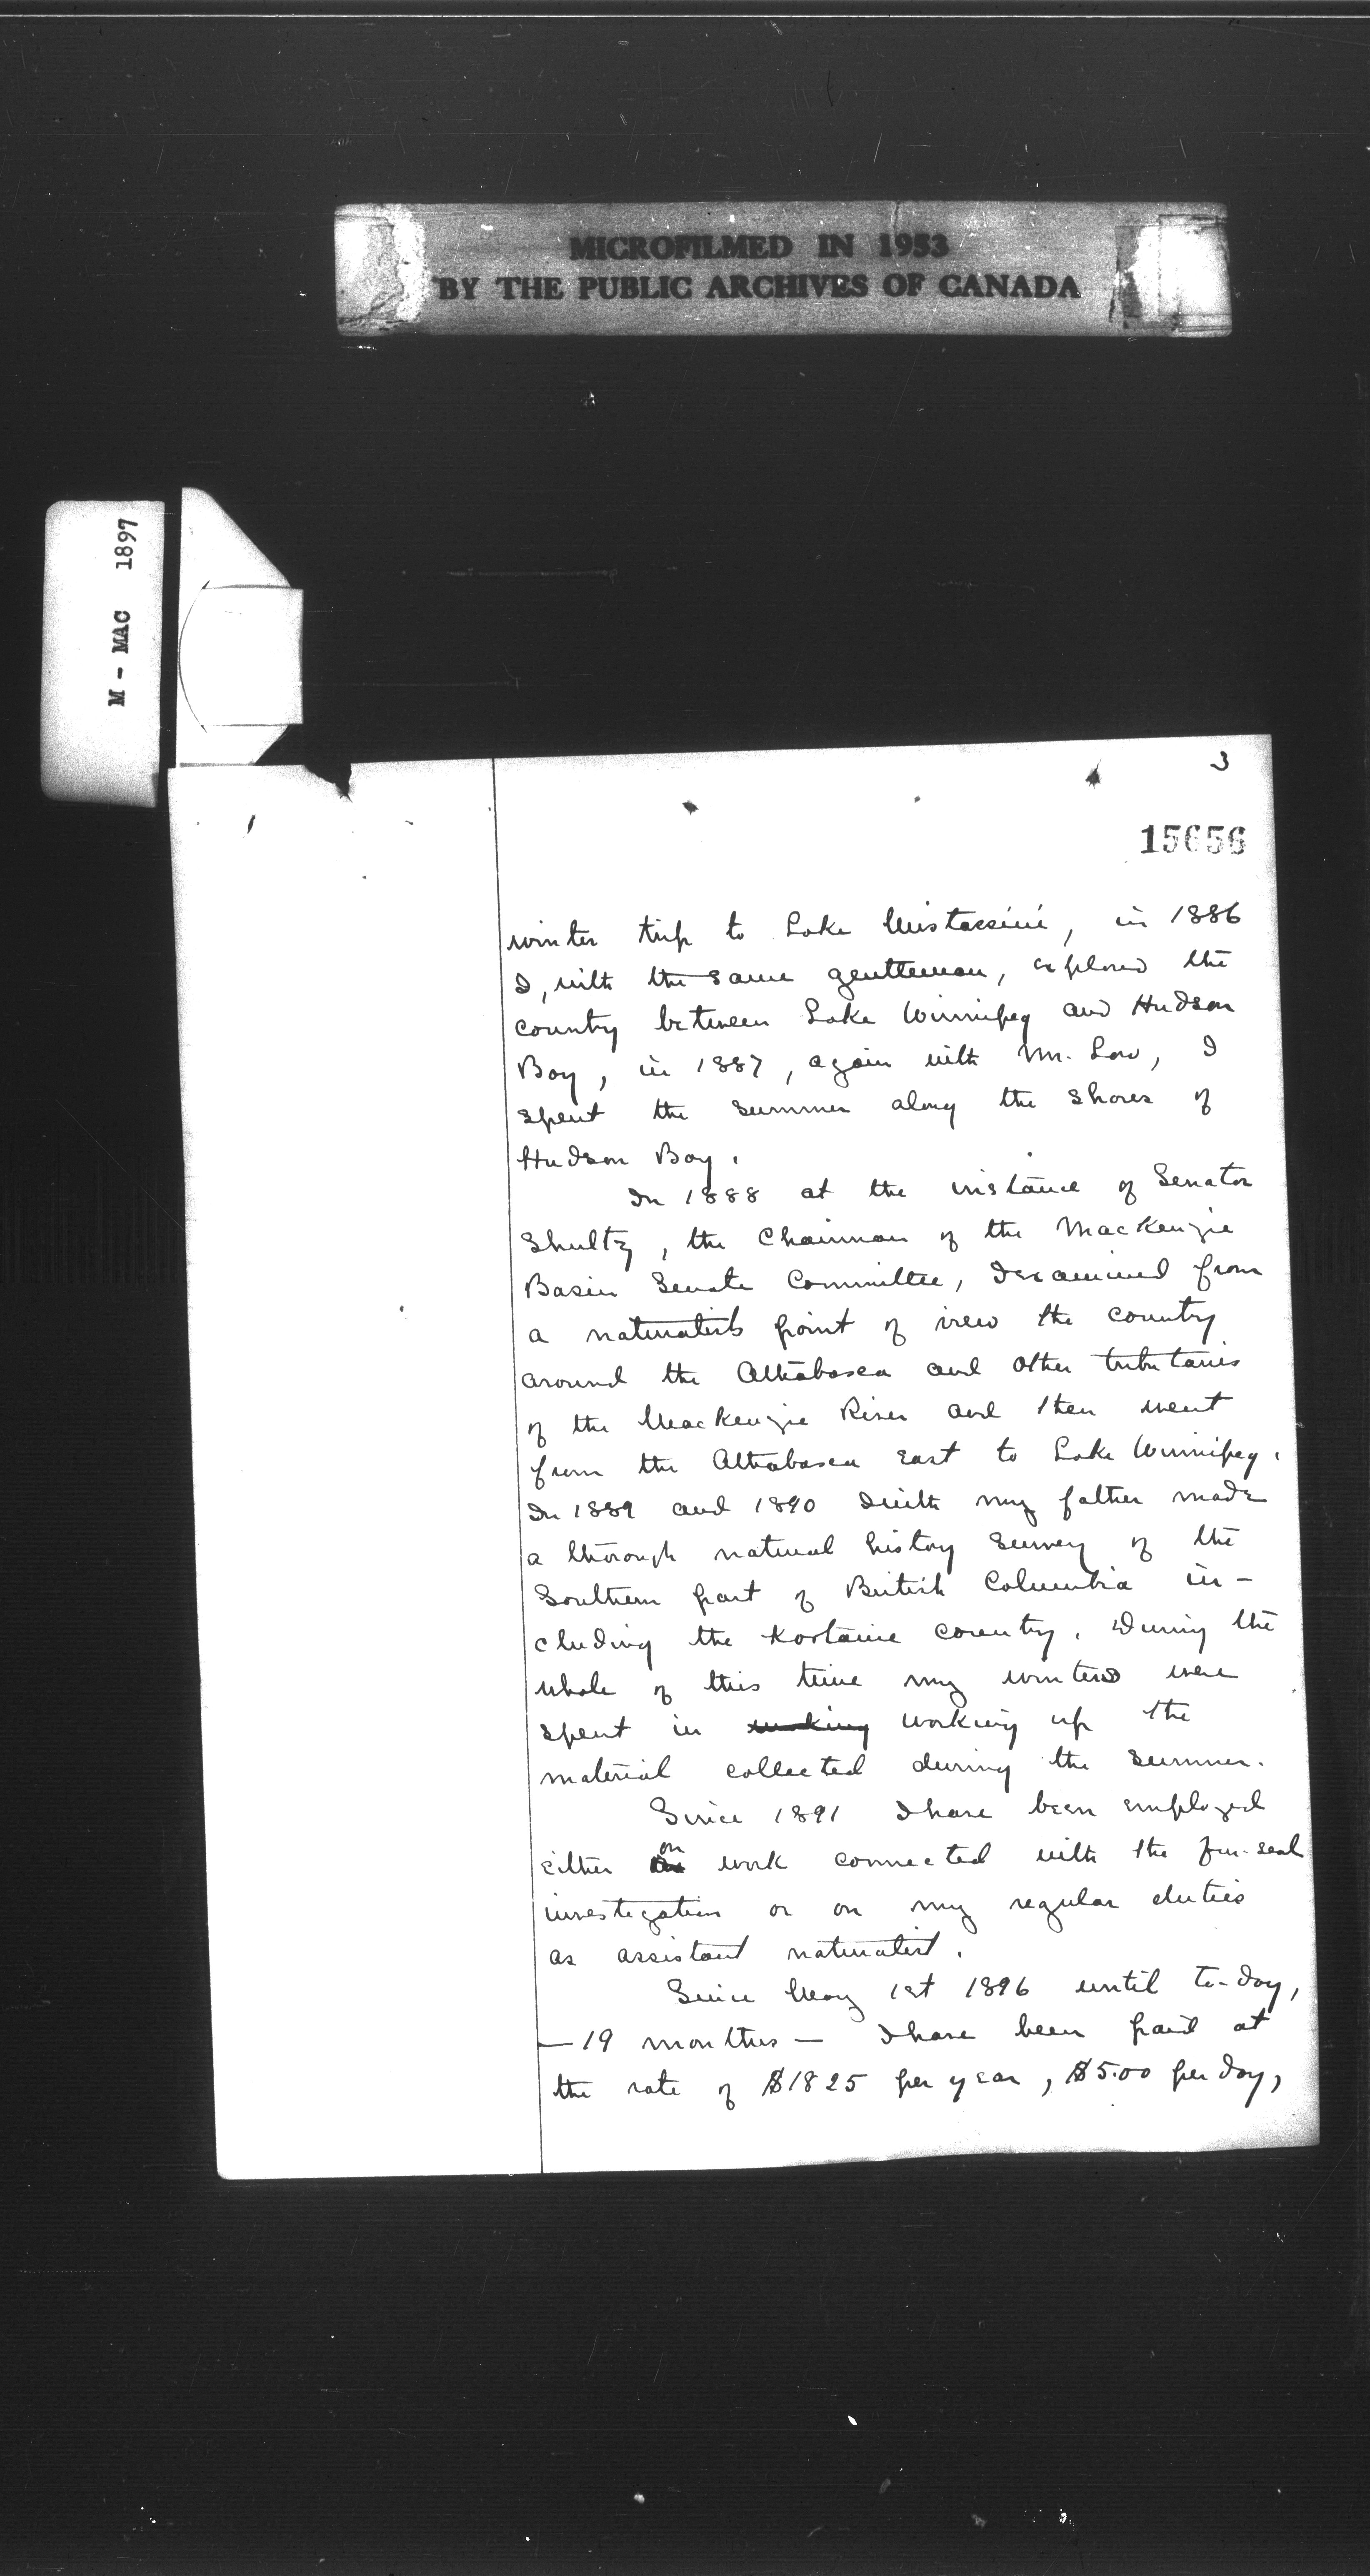 MICROFILMED IN 1953
BY THE PUBLIC ARCHIVES OF CANADA
M - MAC 1897
3
15656
winter trip to Lake Mistassini, in 1886
I, with the same gentleman, explored the
country between Lake Winnipeg and Hudson
Bay, in 1887, again with Mr. Low, I
spent the summer along the shores of
Hudson Bay.
In 1888 at the instance of Senator
Shultz, the Chairman of the MacKenzie
Basin Senate Committee, I examined from
a naturalist's point of view the country
around the Athabasca and other tributaries
of the MacKenzie River and then went
from the Athabasca east to Lake Winnipeg.
In 1889 and 1890 I with my father made
a thorough natural history survey of the
Southern part of British Columbia in-
cluding the Kootanie country. During the
whole of this time my winters were
spent in working working up the
material collected during the summer.
Since 1891 I have been employed
either on work connected with the fur-seal
investigation or on my regular duties
as assistant naturalist.
Since May 1st 1896 until to-day,
— 19 months — I have been paid at
the rate of $1825 per year, $5.00 per day,